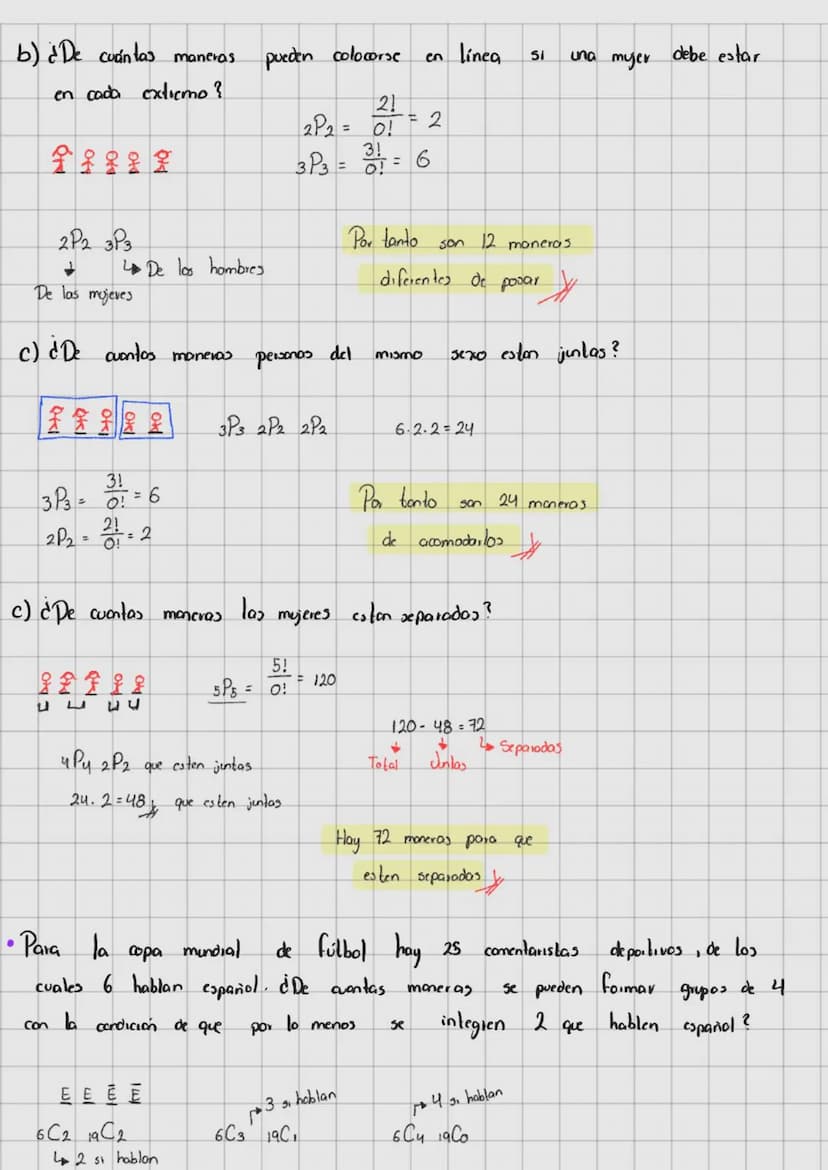 b) ¿De cuántas maneras pueden colocarse en línea si una mujer debe estar
en cada extremo?
2P2 = 2!/0! = 2
3P3 = 3!/0! = 6
2P2 3P3
↳ De los hombres
De las mujeres
Por tanto son 12 maneras
diferentes de posar
c) ¿De cuantas maneras personas del mismo sexo estan juntas?
3P3 2P2 2P2 6·2·2=24
3P3 = 3!/0! = 6
2P2 = 2!/0! = 2
Por tanto son 24 maneras
de acomodarlos
c) ¿De cuantas maneras las mujeres estan separadas?
5P5 = 5!/0! = 120
120 - 48 = 72
↳ Separadas
Total Juntas
4P4 2P2 que esten juntas
24·2=48 que esten juntas
Hay 72 maneras para que
esten separadas
• Para la copa mundial de fútbol hay 25 comentaristas deportivos, de los
cuales 6 hablan español. ¿De cuantas maneras se pueden formar grupos de 4
con la condición de que por lo menos se integren 2 que hablen español?
E E E E
3 si hablan
4 si hablan
6C2 19C2 6C3 19C1 6C4 19C0
↳ 2 si hablan